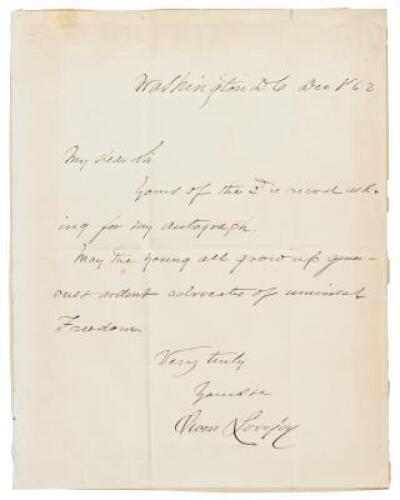 Washington D C Dec 1862
My dear Sir
Yours of the 3d is recvd ask-
ing for my autograph.
May the young all grow up gener-
ous & ardent advocates of universal
Freedom
Very truly
Yours &c
Owen Lovejoy